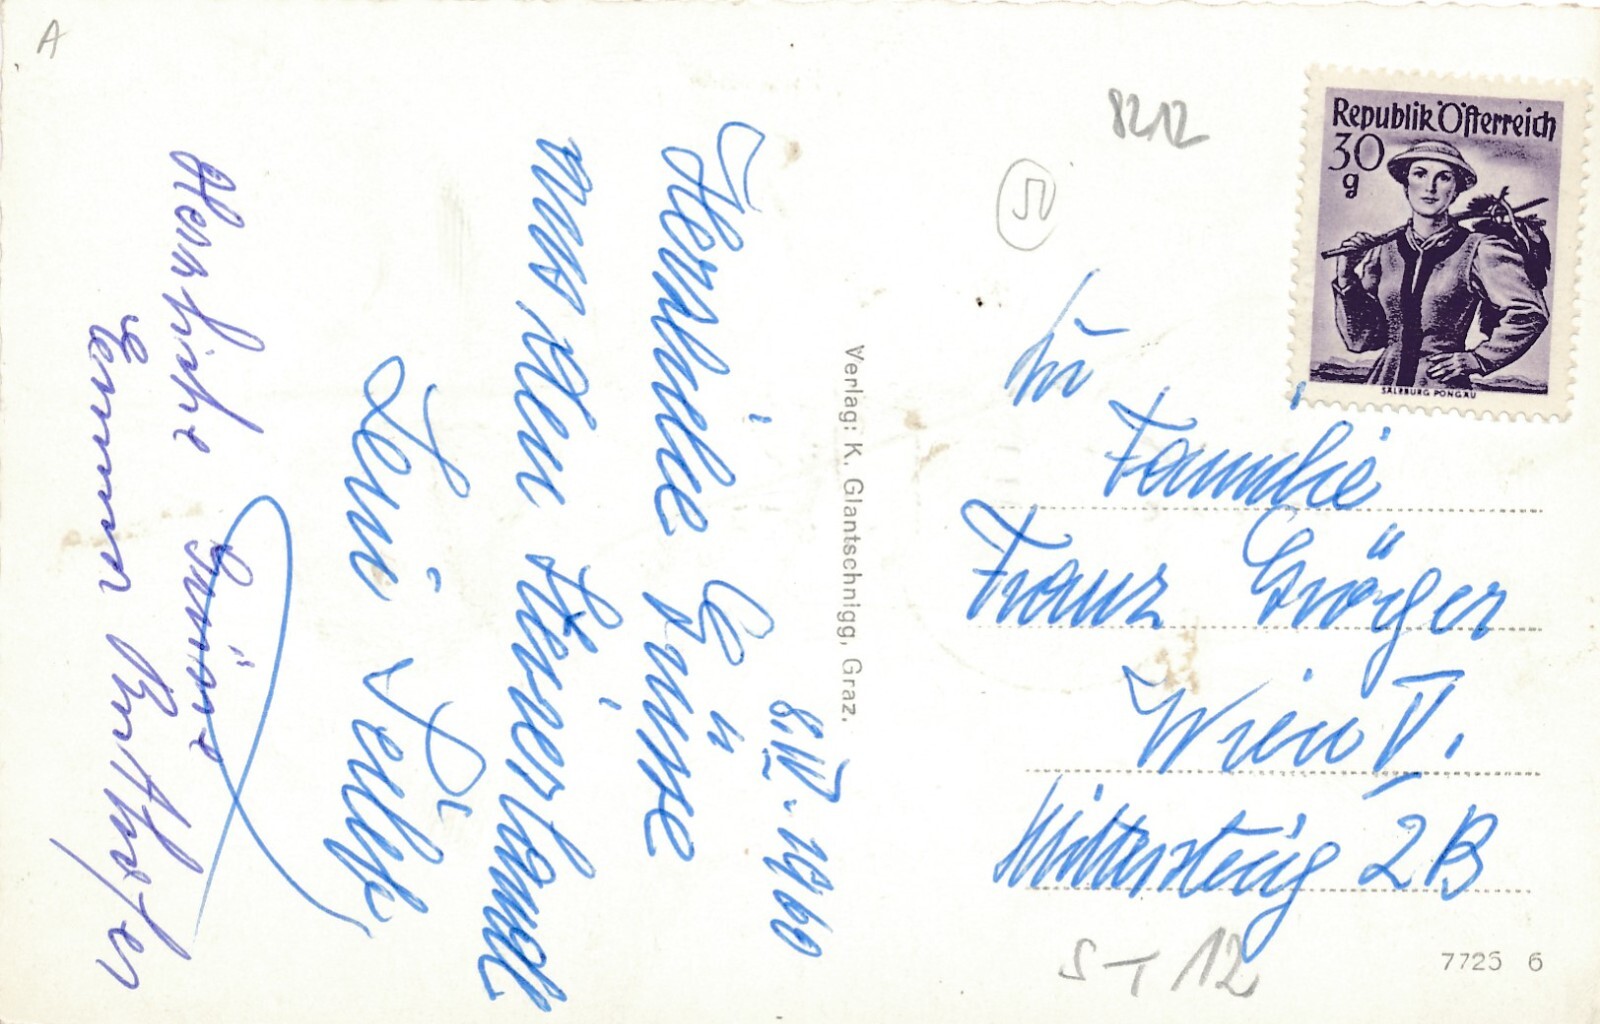 A
8.IV.1960
Herzliche Grüsse
aus dem Steirerlandl
Leni
Herzliche Grüsse
Verlag: K. Glantschnigg, Graz.
8212
5
Republik Österreich
30
g
SALZBURG PONGAU
An
Familie
Franz Gröger
Wien V.
Mittersteig 2B
ST 12
7725 6